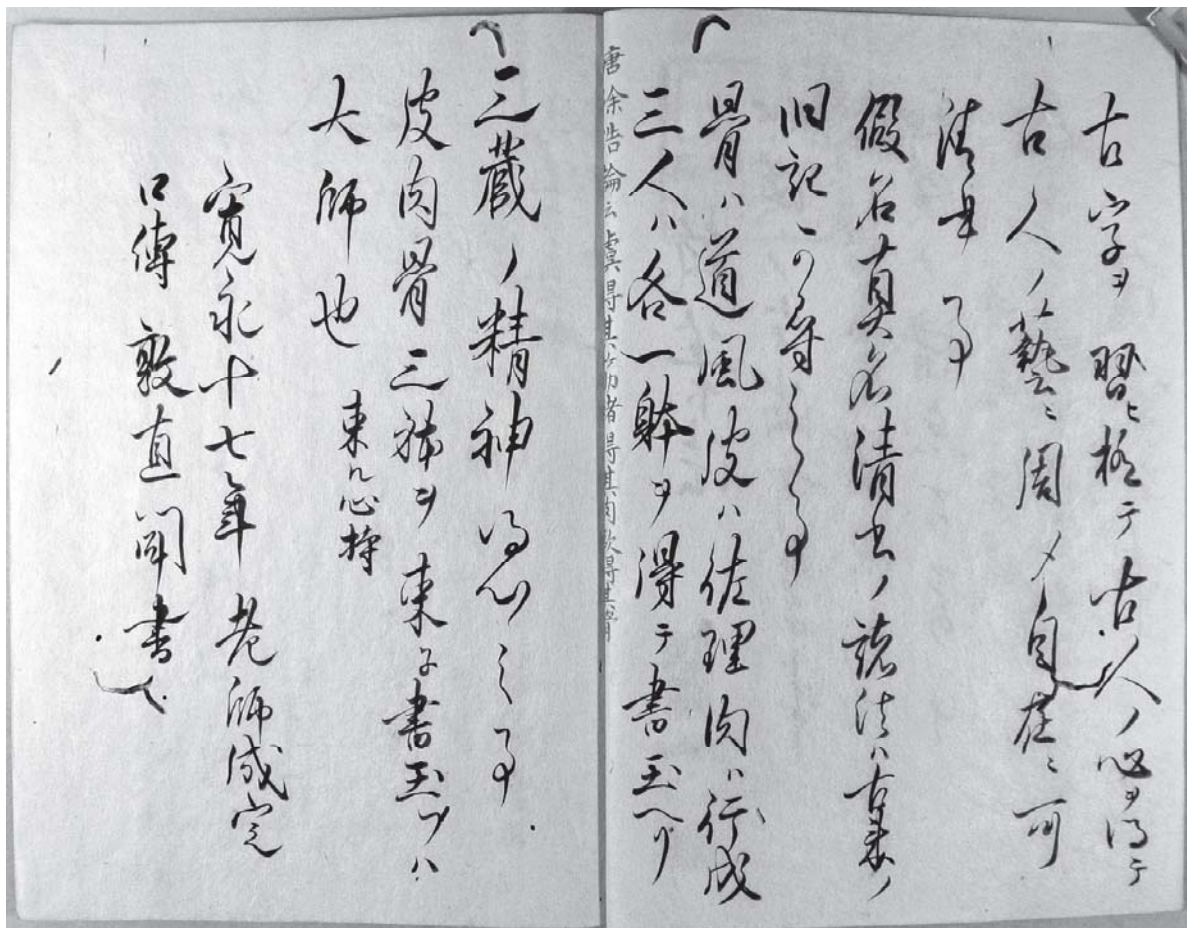 古字ヲ習ヒ極テ古人ノ心ヲ得テ
古人ノ藝ニ周メ自在ニ可
清書事
假名真名清書ノ諸法ハ古来ノ
旧記可守之事
骨ハ道風皮ハ佐理肉ハ行成
三人ハ各一躰ヲ得テ書玉ヘリ
唐徐浩論云虞得其筋褚得其肉欧得其骨
三蔵ノ精神得心之事
皮肉骨三躰ヲ兼テ書玉フハ
大師也 兼ル心持
寛永十七年 老師成定
口傳 敦直聞書之